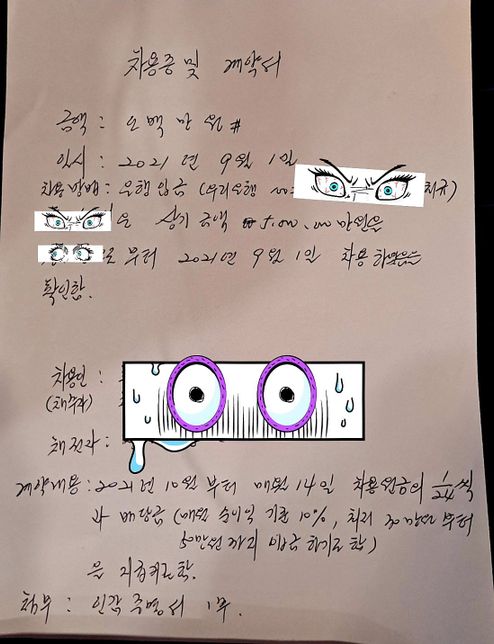 차용증 및 계약서
금액 : 오백만원 #
일시 : 2021년 9월 1일
차용방법 : 은행입금 (우리은행
은 상기 금액 ₩5,000,000만원을
로부터 2021년 9월 1일 차용하였음을
확인함.
차용인 :
(채무자)
채권자 :
계약내용 : 2021년 10월부터 매월 14일 차용원금의 1/24씩
과 배당금 (매월 순이익 기준 10%, 최저 30만원부터
50만원까지 입금하기로 함)
을 지급키로 함.
첨부 : 인감증명서 1부.